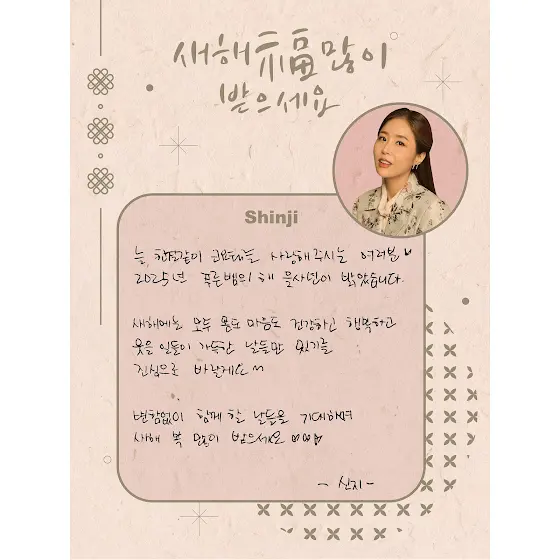 새해 福 많이
받으세요
Shinji
늘, 한결같이 코요태를 사랑해주시는 여러분♥
2025년 푸른뱀의 해 을사년이 밝았습니다.
새해에는 모두 몸도 마음도 건강하고 행복하고
웃을 일들이 가득한 날들만 있기를
진심으로 바랄게요~
변함없이 함께 할 날들을 기대하며
새해 복 많이 받으세요 ♡♡♡
- 신지 -